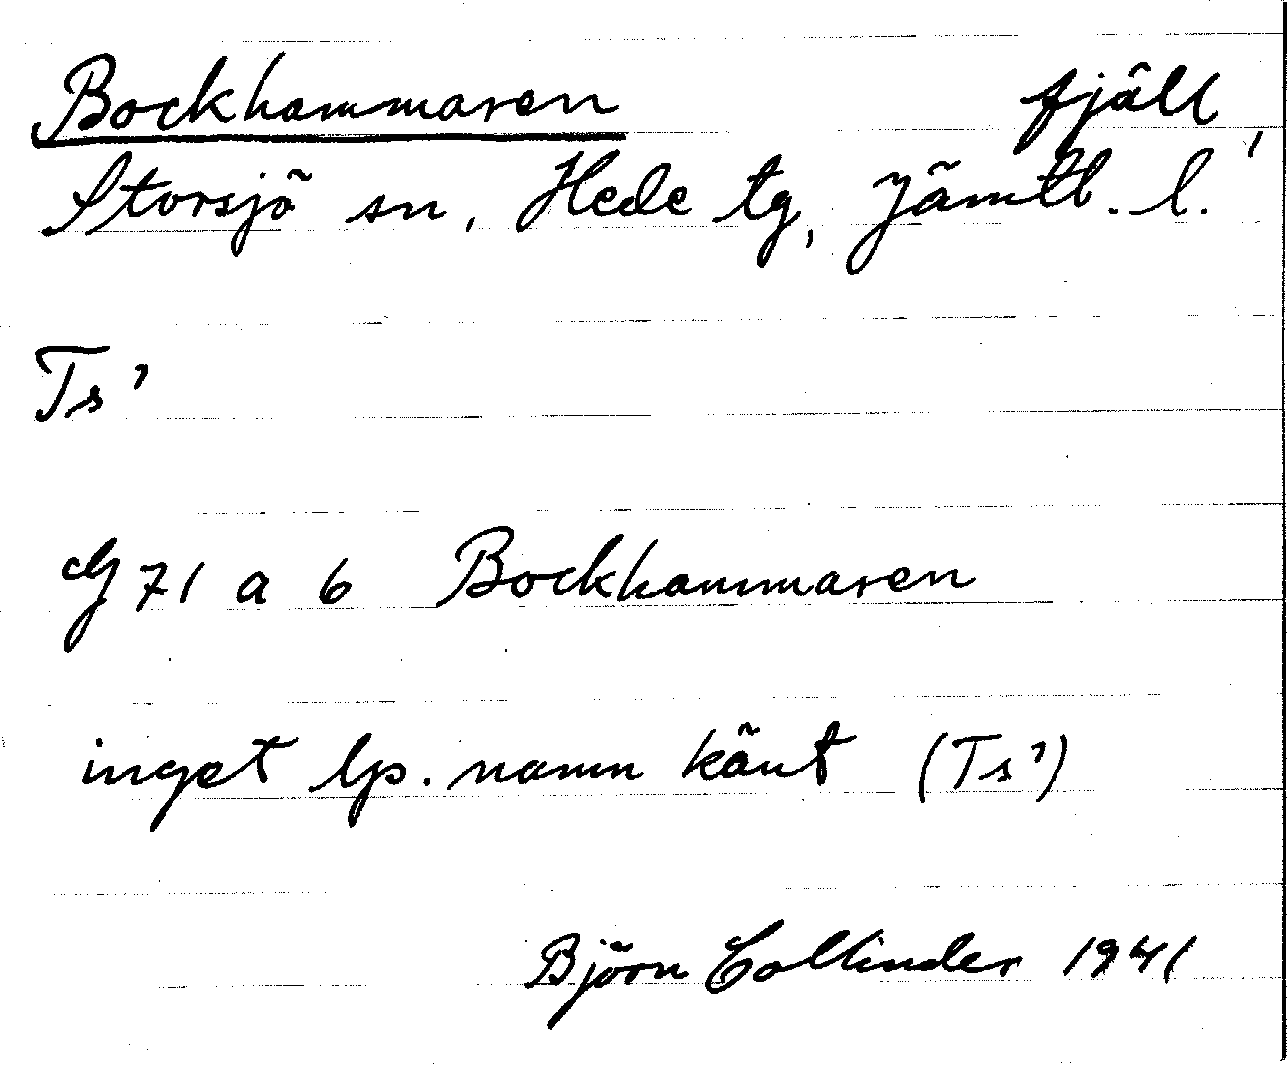 Bockhammaren fjäll,
Storsjö sn, Hede tg, Jämtl. l.
Ts'
G 71 a 6 Bockhammaren
inget lp. namn känt (Ts')
Björn Collinder 1941